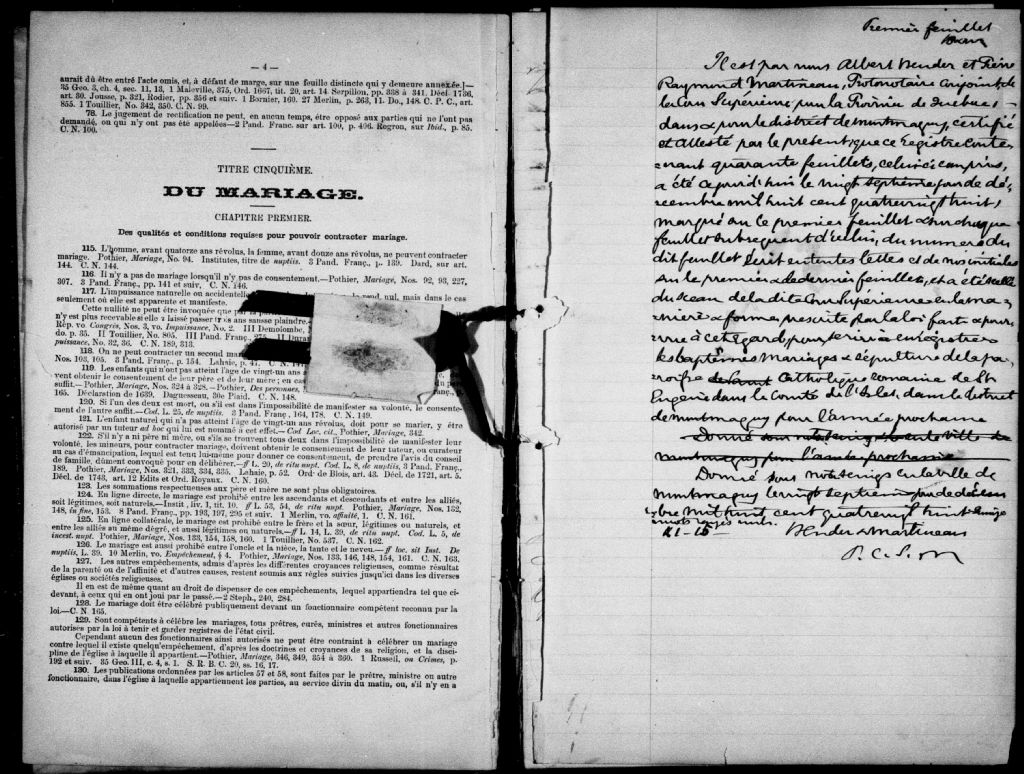 — 4 —
aurait dû être entré l'acte omis, et, à défaut de marge, sur une feuille distincte qui y demeure annexée.]—
35 Geo. 3, ch. 4, sec. 11, 13, 1 Maleville, 375, Ord. 1667, tit. 20, art. 14. Serpillon, pp. 338 à 341. Décl. 1736,
art. 30. Jousse, p. 321, Rodier, pp. 356 et suiv. 1 Bornier, 160. 27 Merlin, p. 263, 11. Do., 148. C. P. C., art.
855. 1 Touillier, No. 342, 350. C. N. 99.
78. Le jugement de rectification ne peut, en aucun temps, être opposé aux parties qui ne l'ont pas
demandé, ou qui n'y ont pas été appelées—2 Pand. Franc. sur art. 100, p. 406. Regron, sur Ibid., p. 85.
C. N. 100.
TITRE CINQUIÈME.
DU MARIAGE.
CHAPITRE PREMIER.
Des qualités et conditions requises pour pouvoir contracter mariage.
115. L'homme, avant quatorze ans révolus, la femme, avant douze ans révolus, ne peuvent contracter
mariage. Pothier, Mariage, No. 94. Institutes, titre de nuptiis. 3 Pand. Franç., p. 139. Dard, sur art.
144. C. N. 144.
116. Il n'y a pas de mariage lorsqu'il n'y pas de consentement.—Pothier, Mariage, Nos. 92, 93, 227,
307. 3 Pand. Franç., pp. 141 et suiv. C. N. 146.
117. L'impuissance naturelle ou accidentelle nul, mais dans le cas
seulement où elle est apparente et manifeste.
Cette nullité ne peut être invoquée que par la
n'y est plus recevable si elle a laissé passer trois ans sans se plaindre.
Rép. vo. Congrès, Nos. 3, vo. Impuissance, No. 2. III Demolombe,
do. p. 35. II Touillier, No. 805. III Pand. Franç.,
puissance, No. 32, 36. C. N. 189, 313.
118. On ne peut contracter un second
Nos. 103, 105. 3 Pand. Franç., p. 154. Lahaie, p.
119. Les enfants qui n'ont pas atteint l'âge de vingt-un ans
vent obtenir le consentement de leur père et de leur mère; en cas
suffit.—Pothier, Mariage, Nos. 324 à 328.—Pothier, Des personnes,
165. Déclaration de 1639. Daguesseau, 30e Plaid. C. N. 148.
120. Si l'un des deux est mort, ou s'il est dans l'impossibilité de manifester sa volonté, le consente-
ment de l'autre suffit.—Cod. L. 25, de nuptiis. 3 Pand. Franç., 164, 178. C. N. 149.
121. L'enfant naturel qui n'a pas atteint l'âge de vingt-un ans révolus, doit pour se marier, y être
autorisé par un tuteur ad hoc qui lui est nommé à cet effet.—Cod Loc. cit., Pothier, Mariage, 342.
122. S'il n'y a ni père ni mère, ou s'ils se trouvent tous deux dans l'impossibilité de manifester leur
volonté, les mineurs, pour contracter mariage, doivent obtenir le consentement de leur tuteur, ou curateur
au cas d'émancipation, lequel est tenu lui-même pour donner ce consentement, de prendre l'avis du conseil
de famille, dûment convoqué pour en délibérer.—ff L. 20, de ritu nupt. Cod. L. 8, de nuptiis, 3 Pand. Franç.,
189. Pothier, Mariage, Nos. 321, 333, 334, 335. Lahaie, p. 52. Ord. de Blois, art. 43. Décl. de 1721, art. 5.
Décl. de 1743, art. 12 Edits et Ord. Royaux. C. N. 160.
123. Les sommations respectueuses aux père et mère ne sont plus obligatoires.
124. En ligne directe, le mariage est prohibé entre les ascendants et descendants et entre les alliés,
soit légitimes, soit naturels.—Instit., liv. 1, tit. 10. ff L. 53, 54, de ritu nupt. Pothier, Mariage, Nos. 132,
148, in fine, 153. 8 Pand. Franç., pp. 193, 197, 295 et suiv. 1 Merlin, vo. affinité, 1. C. N. 161.
125. En ligne collatérale, le mariage est prohibé entre le frère et la sœur, légitimes ou naturels, et
entre les alliés au même dégré, et aussi légitimes ou naturels.—ff L. 14, L. 39, de ritu nupt. Cod. L. 5, de
incest. nupt. Pothier, Mariage, Nos. 133, 154, 158, 160. 1 Touillier, No. 537. C. N. 162.
126. Le mariage est aussi prohibé entre l'oncle et la nièce, la tante et le neveu.—ff loc. sit Inst. De
nuptiis, L. 39. 10 Merlin, vo. Empêchement, § 4. Pothier, Mariage, Nos. 133, 146, 148, 154, 161. C. N. 163.
127. Les autres empêchements, admis d'après les différentes croyances religieuses, comme résultat
de la parenté ou de l'affinité et d'autres causes, restent soumis aux règles suivies jusqu'ici dans les diverses
églises ou sociétés religieuses.
Il en est de même quant au droit de dispenser de ces empêchements, lequel appartiendra tel que ci-
devant, à ceux qui en ont joui par le passé.—2 Steph., 240, 284.
128. Le mariage doit être célébré publiquement devant un fonctionnaire compétent reconnu par la
loi.—C. N. 165.
129. Sont compétents à célébre les mariages, tous prêtres, curés, ministres et autres fonctionnaires
autorisés par la loi à tenir et garder registres de l'état civil.
Cependant aucun des fonctionnaires ainsi autorisés ne peut être contraint à célébrer un mariage
contre lequel il existe quelqu'empêchement, d'après les doctrines et croyances de sa religion, et la disci-
pline de l'église à laquelle il appartient.—Pothier, Mariage, 346, 349, 354 à 360. 1 Russell, on Crimes, p.
192 et suiv. 35 Geo. III, c. 4, s. 1. S. R. B. C. 20, ss. 16, 17.
130. Les publications ordonnées par les articles 57 et 58, sont faites par le prêtre, ministre ou autre
fonctionnaire, dans l'église à laquelle appartiennent les parties, au service divin du matin, ou, s'il n'y en a
Premier feuillet
Il est par nous Albert Bender et Pierre
Raymond Martineau, Protonotaire Conjoint de
la Cour Supérieure pour la Province de Quebec,
dans & pour le district de Montmagny, certifié
& attesté par le présent, que ce Registre conte-
nant quarante feuillets, celui ci compris,
a été ce jourd'hui le vingt septième jour de dé-
cembre mil huit cent quatrevingt huit,
marqué sur le premier feuillet & sur chaque
feuillet subsequent d'icelui, du numero du
dit feuillet écrit en toutes lettres et de nos initiales
sur le premier & le dernier feuillets, et a été scellé
du sceau de la dite Cour Superieure en la ma-
nière & forme prescrite par la loi faite & pour-
vue à cet égard, pour servir à enregistrer
les baptêmes Mariages & Sépulture de la pa-
roisse de Saint Catholique romaine de St
Eugène dans le Comté de l'Islet, dans le district
de Montmagny pour l'année prochaine
Donné sous nos seings en la ville de
Montmagny pour l'année prochaine
Donné sous nos seings en la ville de
Montmagny le vingt septieme jour de décem
bre mil huit cent quatrevingt huit
mots rayés nuls.
Bender & Martineau
P. C. S. M